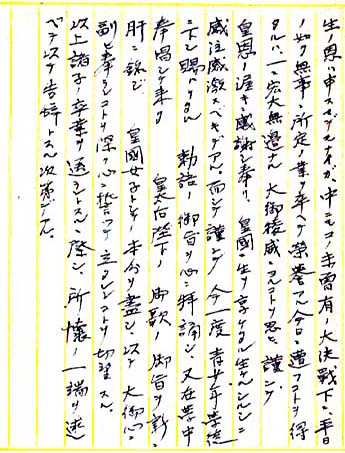 生ノ思ハ申スマデモナイガ、中ニモコノ未曽有ノ大決戦下ニ平日
ノ如ク無事ニ所定ノ業ヲ卒ヘテ栄誉アル今日ニ遭フコトヲ得
タルハ、一ニ宏大無邊ナル大御稜威ニヨルコトヲ思ヒ、謹ンデ
皇恩ノ渥キヲ感謝シ奉リ、皇國ニ生ヲ享ケタル生キガヒニ
感泣感激スベキデアル。而シテ謹ンデ今一度青少年学徒
ニ下シ賜ヘリタル 勅語ノ御旨ヲ心ニ拝誦シ、又在学中
奉唱シテ来タ 皇太后陛下ノ御歌ノ御旨ヲ新ニ
肝ニ銘ジ 皇國女子トシテノ本分ヲ盡シ、以テ大御心ニ
副ヒ奉ランコトヲ深ク心ニ誓ツテ立タレンコトヲ切望スル。
以上諸子ノ卒業ヲ送ラントスルニ際シ、所懐ノ一端ヲ述
ベテ以テ告辞トスル次第デアル。